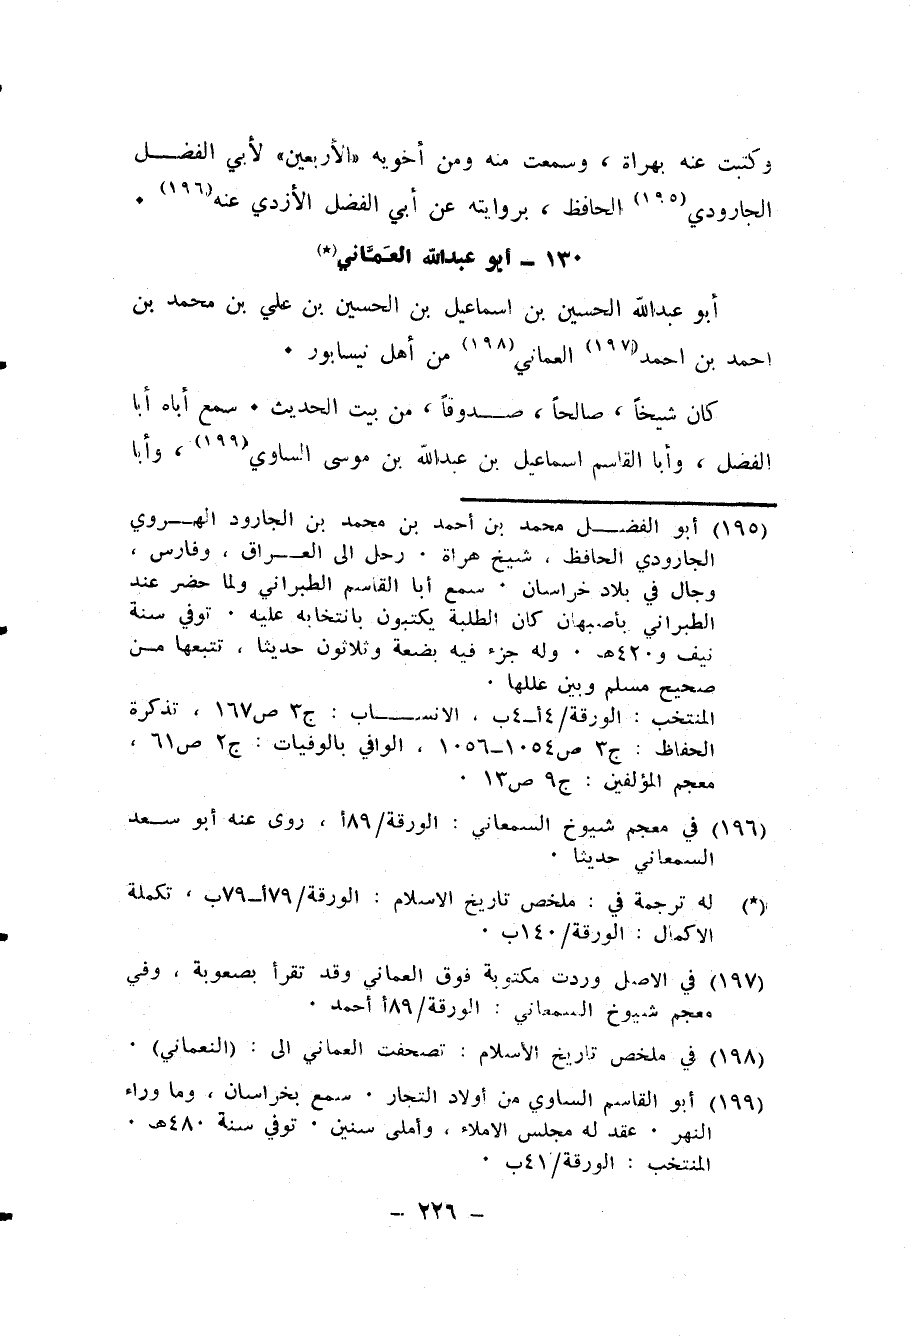 وكتبت عنه بهراة ، وسمعت منه ومن أخويه «الأربعين» لأبي الفضــل
الجارودي(١٩٥) الحافظ ، بروايته عن أبي الفضل الأزدي عنه(١٩٦) ٠
١٣٠ ــ أبو عبدالله العَمَّاني(*)
أبو عبدالله الحسين بن اسماعيل بن الحسين بن علي بن محمد بن
احمد بن احمد(١٩٧) العماني(١٩٨) من أهل نيسابور ٠
كان شيخاً ، صالحاً ، صــدوقاً ، من بيت الحديث ٠ سمع أباه أبا
الفضل ، وأبا القاسم اسماعيل بن عبدالله بن موسى الساوي(١٩٩) ، وأبا
(١٩٥) أبو الفضــل محمد بن أحمد بن محمد بن الجارود الهــروي
الجارودي الحافظ ، شيخ هراة ٠ رحل الى العــراق ، وفارس ،
وجال في بلاد خراسان ٠ سمع أبا القاسم الطبراني ولما حضر عند
الطبراني بأصبهان كان الطلبة يكتبون بانتخابه عليه ٠ توفي سنة
نيف و٤٢٠هـ ٠ وله جزء فيه بضعة وثلاثون حديثا ، تتبعها مــن
صحيح مسلم وبين عللها ٠
المنتخب : الورقة/٤أــ٤ب ، الانســاب : ج٣ ص١٦٧ ، تذكرة
الحفاظ : ج٣ ص١٠٥٤ــ١٠٥٦ ، الوافي بالوفيات : ج٢ ص٦١ ،
معجم المؤلفين : ج٩ ص١٣ ٠
(١٩٦) في معجم شيوخ السمعاني : الورقة/٨٩أ ، روى عنه أبو ســعد
السمعاني حديثا ٠
(*) له ترجمة في : ملخص تاريخ الاسلام : الورقة/٧٩أــ٧٩ب ، تكملة
الاكمال : الورقة/١٤٠ب ٠
(١٩٧) في الاصل وردت مكتوبة فوق العماني وقد تقرأ بصعوبة ، وفي
معجم شيوخ السمعاني : الورقة/٨٩أ أحمد ٠
(١٩٨) في ملخص تاريخ الأسلام : تصحفت العماني الى : (النعماني) ٠
(١٩٩) أبو القاسم الساوي من أولاد التجار ٠ سمع بخراسان ، وما وراء
النهر ٠ عقد له مجلس الاملاء ، وأملى سنين ٠ توفي سنة ٤٨٠هـ ٠
المنتخب : الورقة/٤١ب ٠
ــ ٢٢٦ ــ